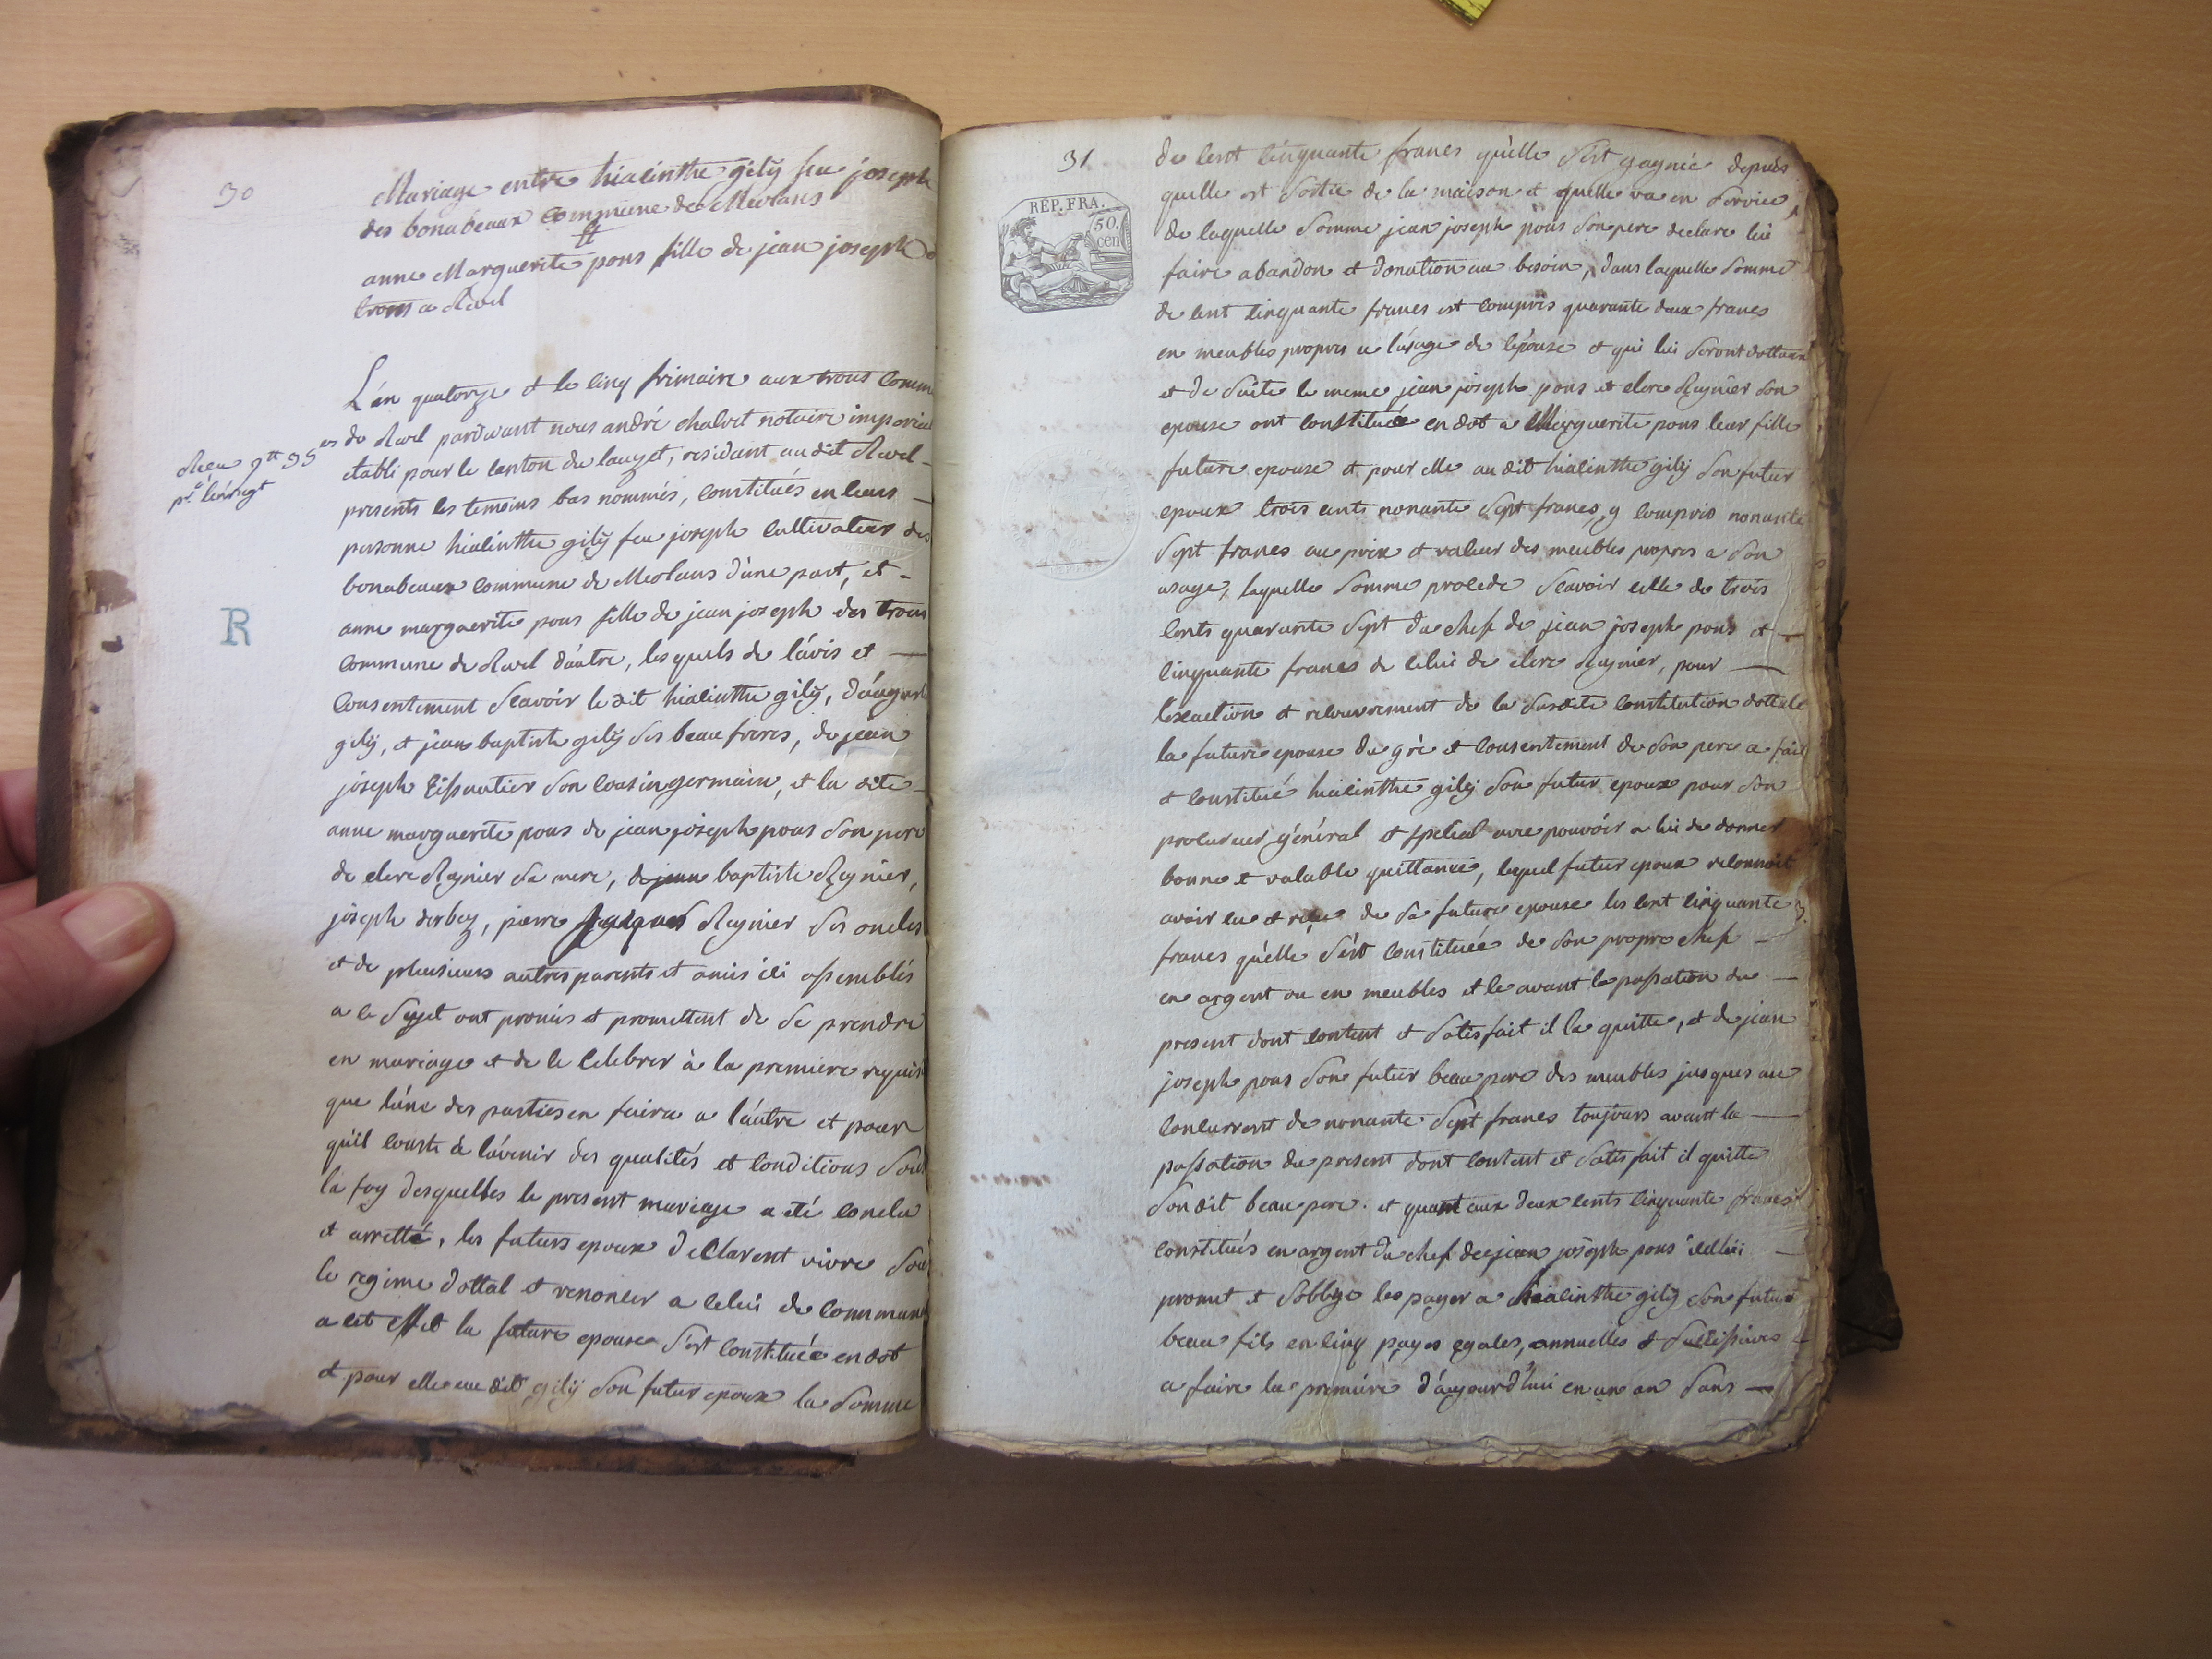 30
Mariage entre hiacinthe gilÿ feu joseph
des bonabeaux commune de Meolans
et
anne Marguerite pons fille de jean joseph
trons a Revel
L'an quatorze et le cinq frimaire aux trons comm
de Revel pardevant nous andré chalvet notaire imperial
etabli pour le canton du lauzet, residant au dit Revel
Recu 9tt 35
pr. l'enregt
presents les temoins bas nommés, constitués en leurs
personne hiacinthe gilÿ feu joseph cultivateur des
bonabeaux commune de Meolans d'une part, et
anne marguerite pons fille de jean joseph des trons
R
commune de Revel d'autre, lesquels de l'avis et
consentement scavoir le dit hiacinthe gilÿ, d'august
gilÿ, et jean baptiste gilÿ ses beau freres, de jean
joseph Eissautier son cousin germain, et la dite
anne marguerite pons de jean joseph pons son pere
de clere Reynier sa mere, de jean baptiste Reynier,
joseph derbez, pierre jacques Reynier ses oncles
et de plusieurs autres parents et amis ici assemblés
a ce sujet ont promis et promettent de se prendre
en mariage et de le celebrer à la premiere requisi
que l'une des parties en faira a l'autre et pour
qu'il conste à l'avenir des qualités et conditions sous
la foy desquelles le present mariage a eté conclu
et arretté, les futurs epoux declarent vivre sous
le regime dottal et renoncer a celui de commun
a cet effet la future epouse s'est constituée en dot
et pour elle au dit gilÿ son futur epoux la somme
31
REP. FRA.
50.
cen
de cent cinquante francs qu'elle s'est gagnée depuis
quelle est sortie de la maison et quelle va en service,
de laquelle somme jean joseph pons son pere declare lui
faire abandon et donation au besoin, dans laquelle somme
de cent cinquante francs est compris quarante deux francs
en meubles propres a l'usage de l'épouse et qui lui seront dottaux
et de suite le meme jean joseph pons et clere Reynier son
epouse ont constitué en dot a Marguerite pons leur fille
future epouse et pour elle au dit hiacinthe gilÿ son futur
epoux trois cents nonante sept francs, y compris nonante
sept francs au prix et valeur des meubles propres a son
usage, laquelle somme procede scavoir celle de trois
cents quarante sept du chef de jean joseph pons et
cinquante francs de celui de clere Reynier, pour
l'exaction et recouvrement de la susdite constitution dottale
la future epouse du gré et consentement de son pere a fait
et constitué hiacinthe gilÿ son futur epoux pour son
procureur général et special avec pouvoir a lui de donner
bonne et valable quittance, lequel futur epoux reconnoit
avoir eu et reçu de sa future epouse les cent cinquante
francs qu'elle s'est constituée de son propre chef
en argent ou en meubles et ce avant la passation du
present dont content et satisfait il la quitte, et de jean
joseph pons son futur beau pere des meubles jusques au
concurrent de nonante sept francs toujours avant la
passation du present dont content et satisfait il quitte
son dit beau pere. et quant aux deux cents cinquante francs
constitués en argent du chef de jean joseph pons icelui
promet et s'oblige les payer a hiacinthe gilÿ son futur
beau fils en cinq payes egales, annuelles et successives
a faire la premiére d'aujourd'hui en un an sans